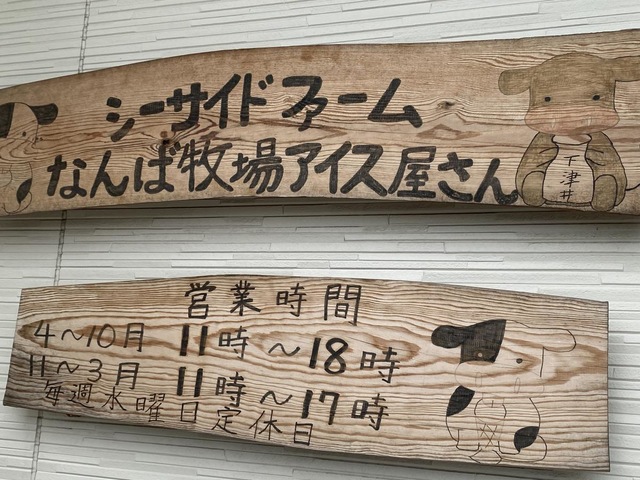 シーサイドファーム
なんば牧場アイス屋さん
下津井
営業時間
4～10月 11時～18時
11～3月 11時～17時
毎週水曜日定休日